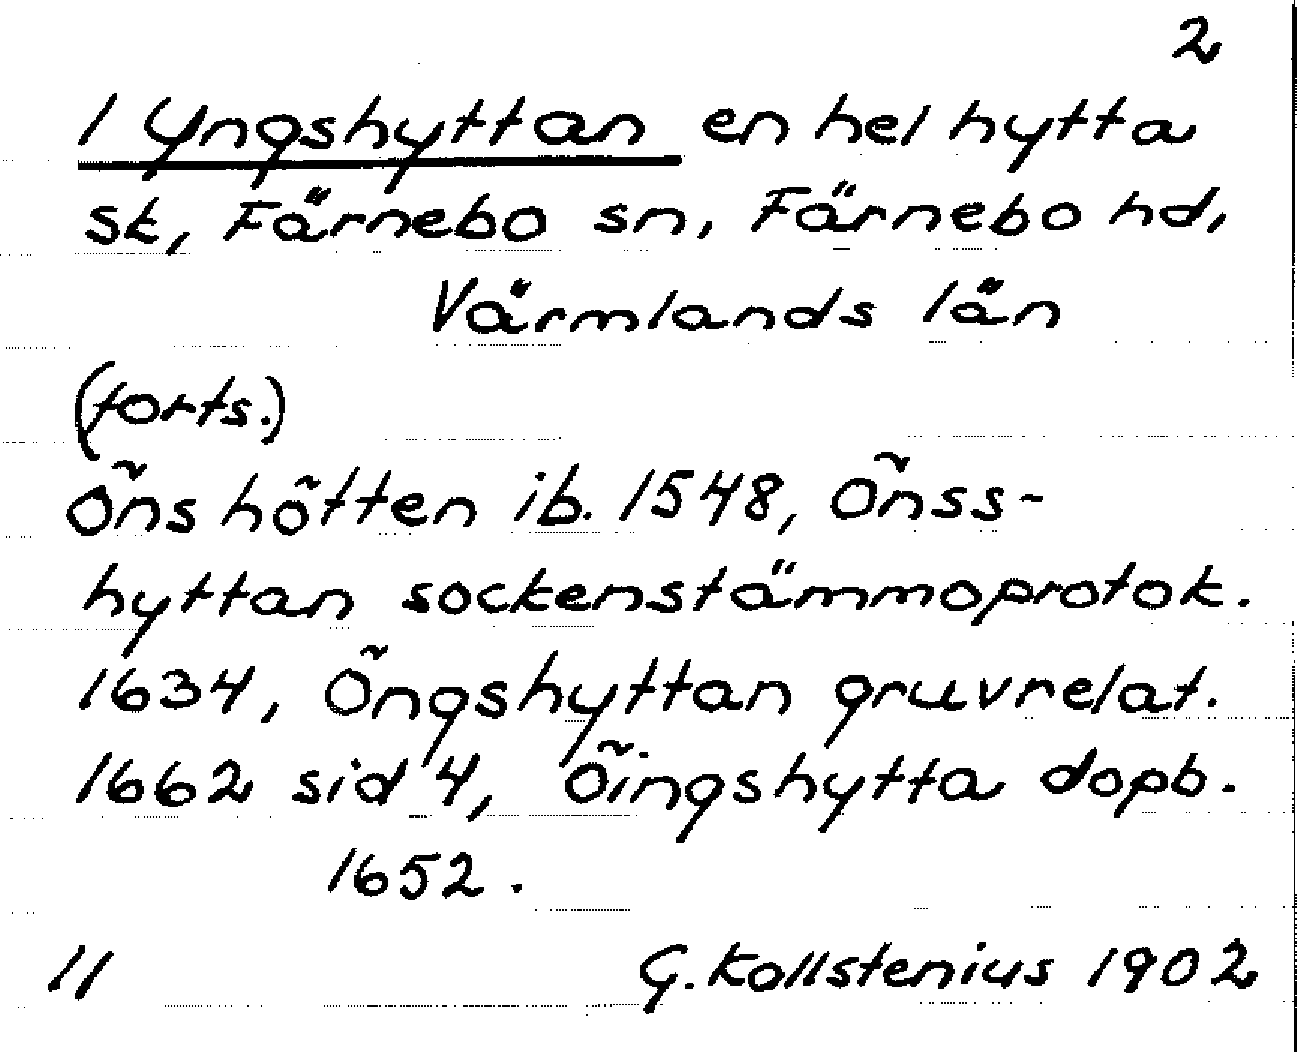 2
1 Yngshyttan en hel hytta
sk, Färnebo sn, Färnebo hd,
Värmlands län
(forts.)
Õns hõtten ib. 1548, Õnss-
hyttan sockenstämmoprotok.
1634, Õngshyttan gruvrelat.
1662 sid 4, Õingshytta dopb.
1652.
11 G. Kallstenius 1902